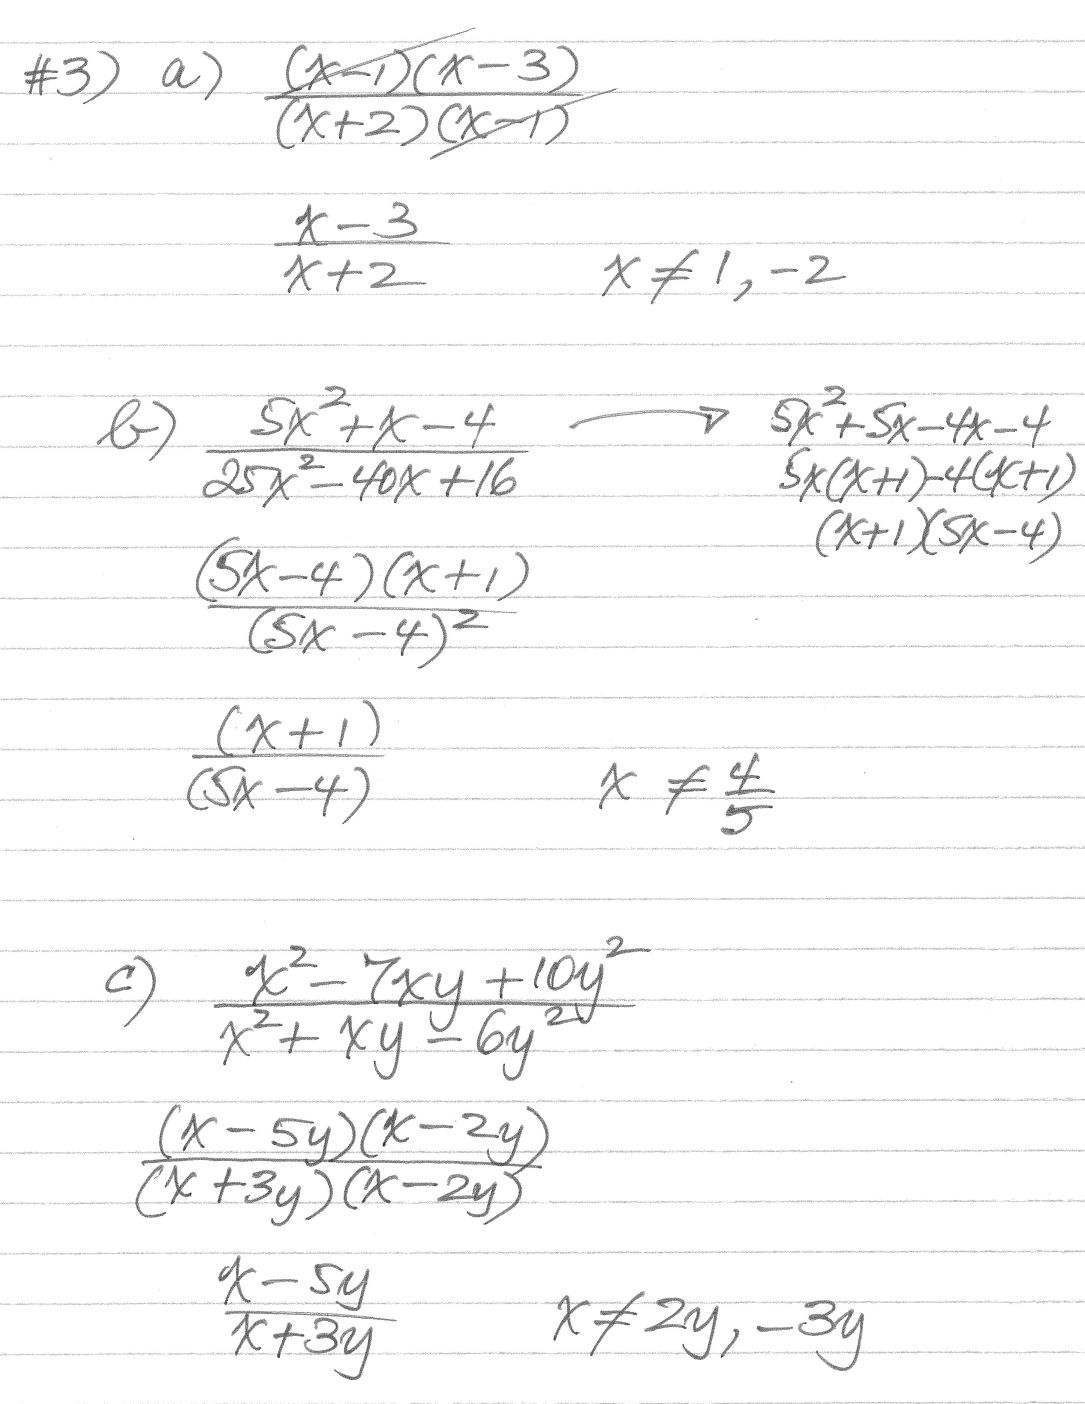 #3) a) (x-1)(x-3)
(x+2)(x-1)
x-3
x+2 x ≠ 1, -2
b) 5x²+x-4 → 5x²+5x-4x-4
25x²-40x+16 5x(x+1)-4(x+1)
(x+1)(5x-4)
(5x-4)(x+1)
(5x-4)²
(x+1)
(5x-4) x ≠ 4/5
c) x²-7xy+10y²
x²+xy-6y²
(x-5y)(x-2y)
(x+3y)(x-2y)
x-5y
x+3y x≠2y, -3y